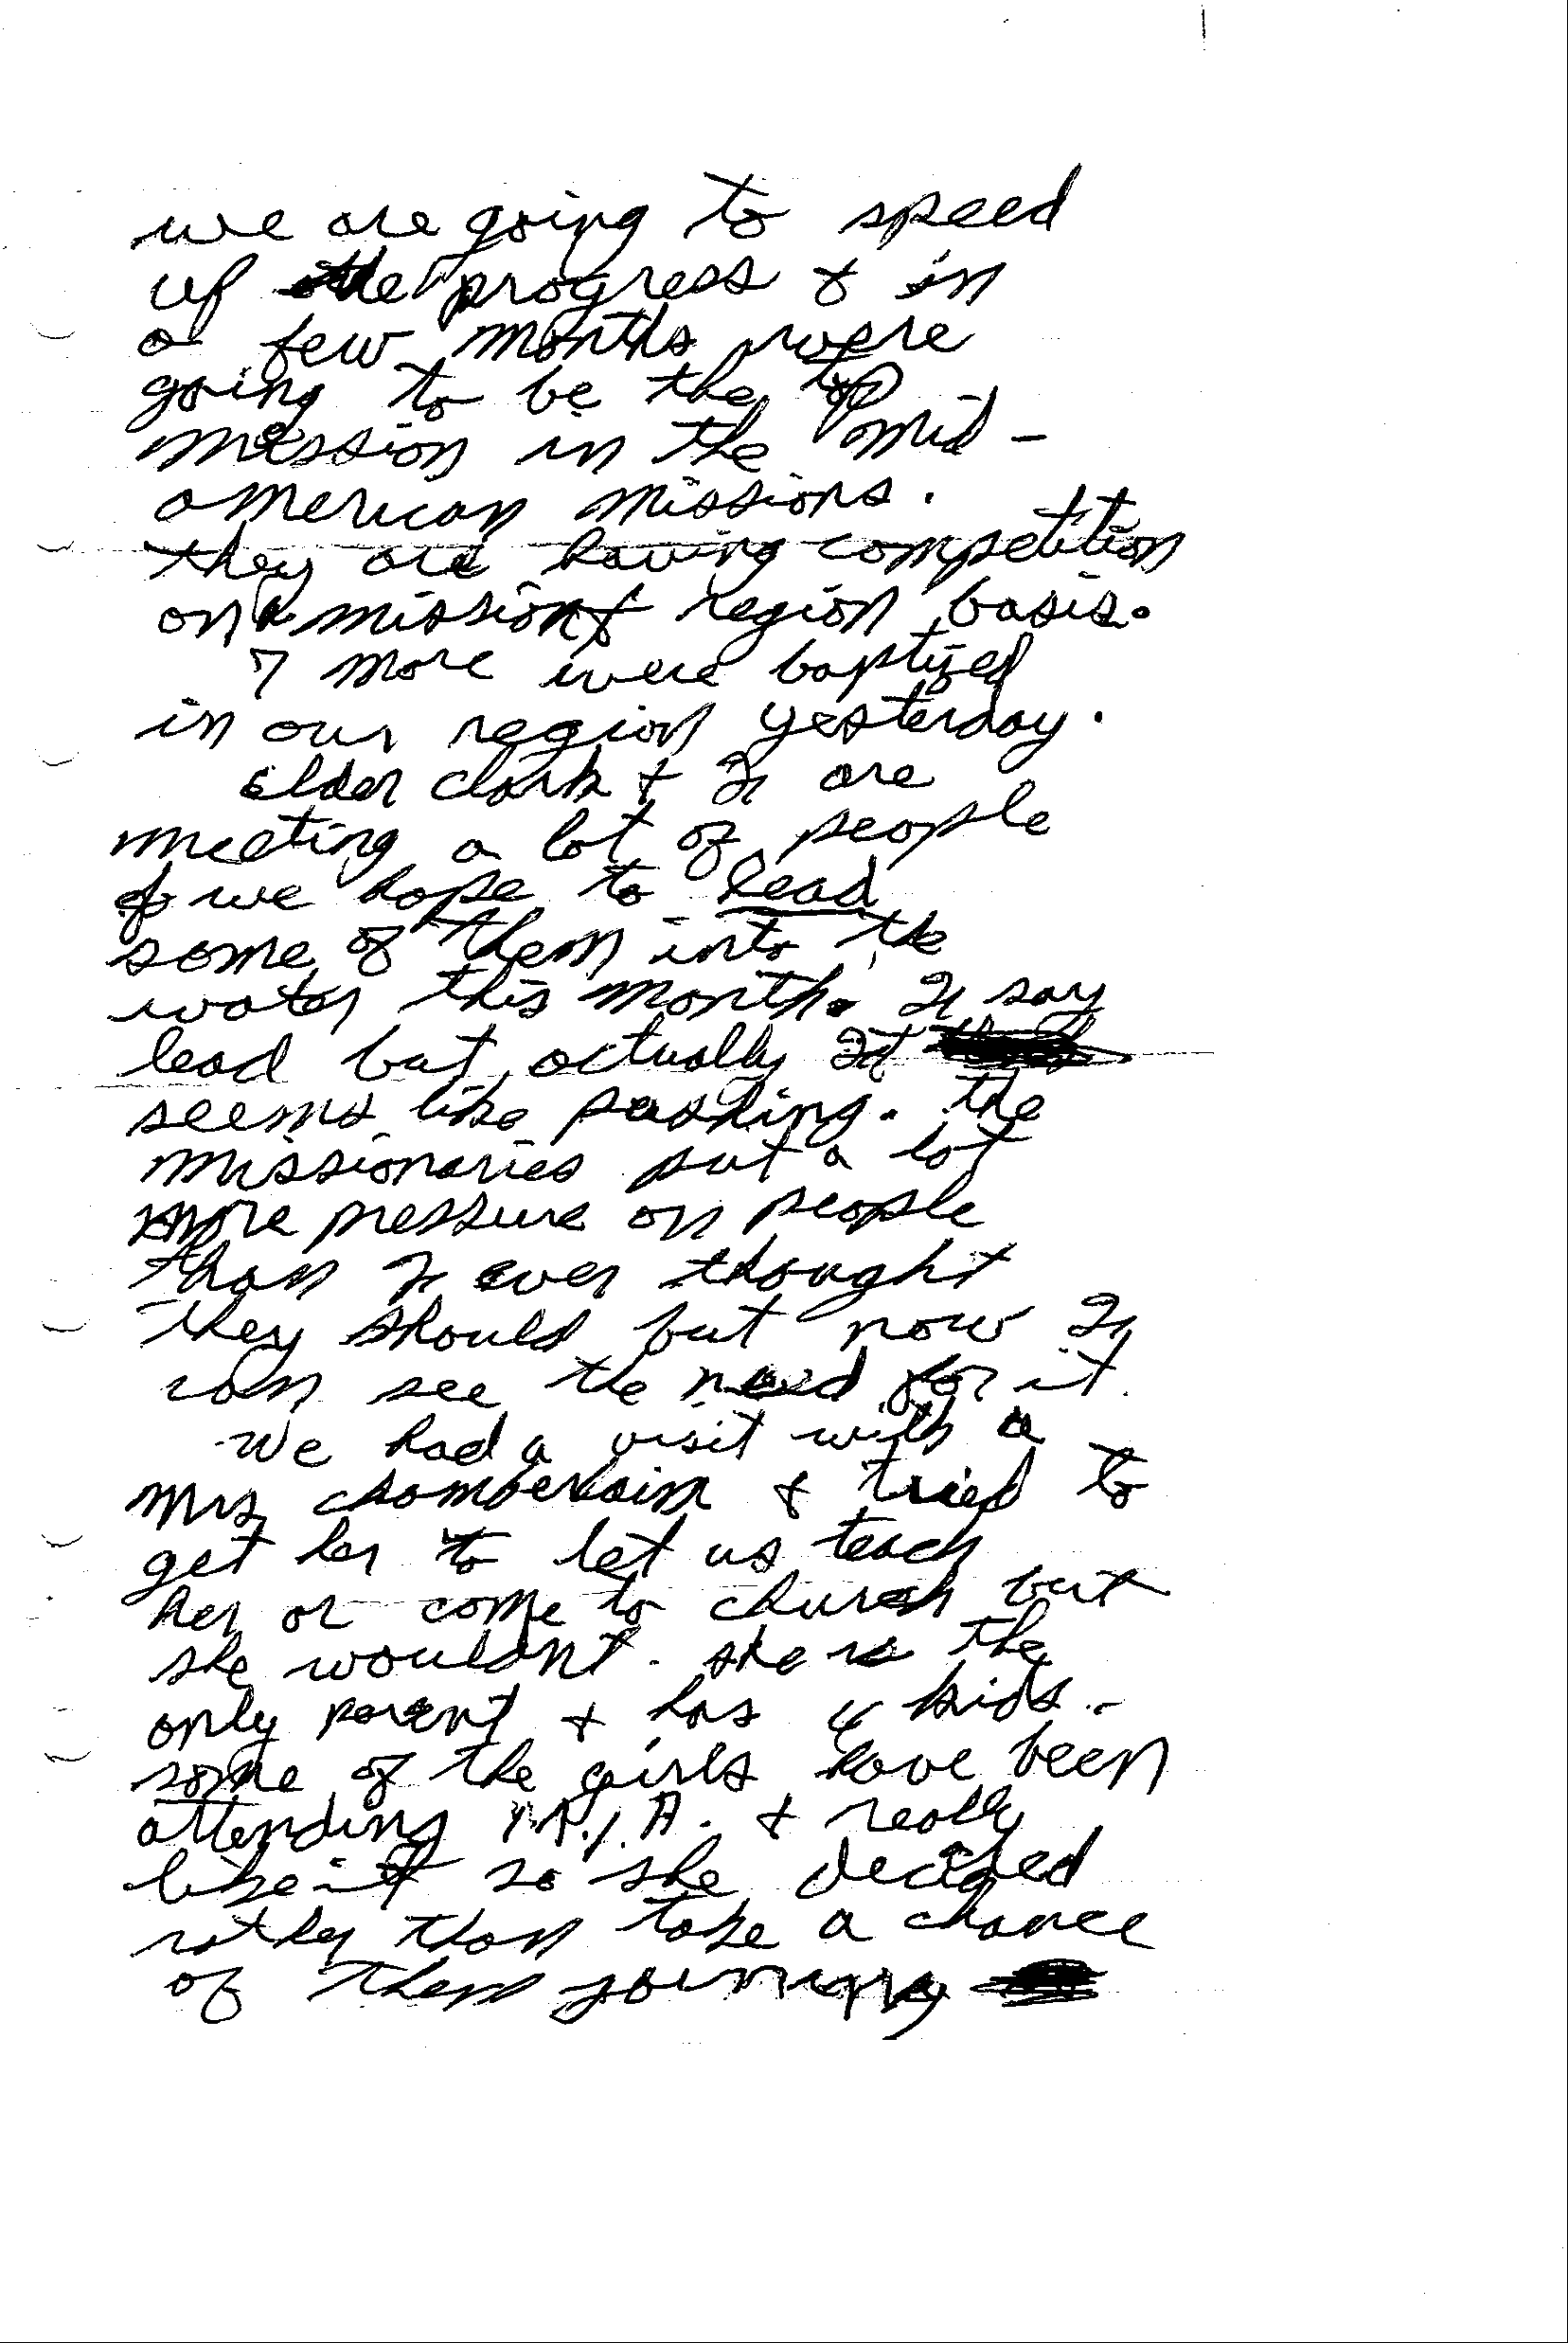 we are going to speed
up the progress & in
a few months were
going to be the top
mission in the mid-
american missions.
they are having competition
on a mission & region basis.
7 more were baptized
in our region yesterday.
elder clark & I are
meeting a lot of people
& we hope to lead
some of them into the
water this month. I say
lead but actually It
seems like pushing. the
missionaries put a lot
more pressure on people
than I ever thought
they should but now I
can see the need for it.
We had a visit with a
Mrs chamberlain & tried to
get her to let us teach
her or come to church but
she wouldnt. she is the
only parent & has 4 kids.
some of the girls have been
attending M.I.A. & really
like it so she decided
rather than take a chance
of them joining